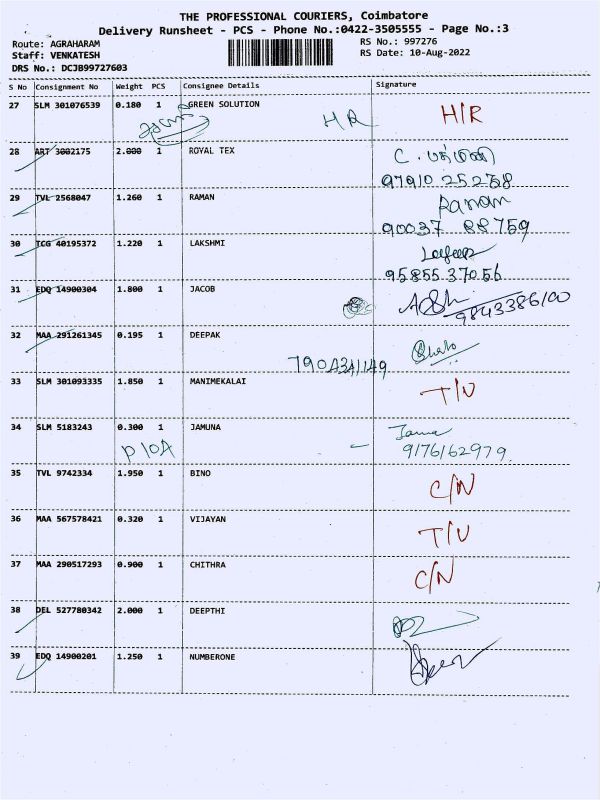 THE PROFESSIONAL COURIERS, Coimbatore
Delivery Runsheet - PCS - Phone No.:0422-3505555 - Page No.:3
Route: AGRAHARAM
Staff: VENKATESH
DRS No.: DCJB99727603
RS No.: 997276
RS Date: 10-Aug-2022
S No Consignment No Weight PCS Consignee Details Signature
27 SLM 301076539 0.180 1 GREEN SOLUTION H/R
HR
28 ART 3002175 2.000 1 ROYAL TEX C. பத்மினி
97910 25258
29 TVL 2568047 1.260 1 RAMAN Raman
90037 88759
30 TCG 40195372 1.220 1 LAKSHMI
95855 37056
31 EDQ 14900304 1.800 1 JACOB
9843386100
32 MAA 291261345 0.195 1 DEEPAK
7904341149
33 SLM 301093335 1.850 1 MANIMEKALAI T/U
34 SLM 5183243 0.300 1 JAMUNA
P10A 9176162979
35 TVL 9742334 1.950 1 BINO C/N
36 MAA 567578421 0.320 1 VIJAYAN T/U
37 MAA 290517293 0.900 1 CHITHRA C/N
38 DEL 527780342 2.000 1 DEEPTHI
39 EDQ 14900201 1.250 1 NUMBERONE